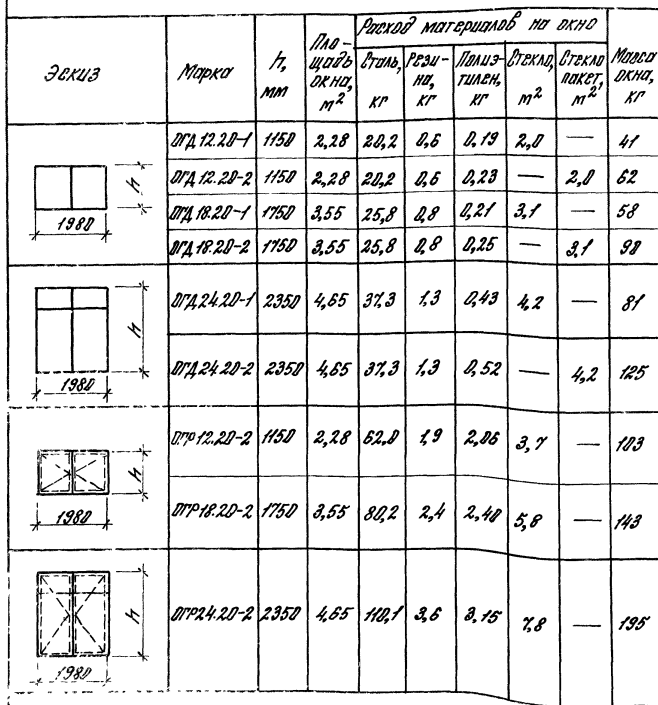 Эскиз Марка h, мм Площадь окна, м² Расход материалов на окно Масса окна, кг
Сталь, кг Резина, кг Полиэтилен, кг Стекло, м² Стеклопакет, м²
ОГД 12.20-1 1150 2,28 20,2 0,6 0,19 2,0 — 41
ОГД 12.20-2 1150 2,28 20,2 0,6 0,23 — 2,0 62
ОГД 18.20-1 1750 3,55 25,8 0,8 0,21 3,1 — 58
ОГД 18.20-2 1750 3,55 25,8 0,8 0,25 — 3,1 90
h
1980
ОГД 24.20-1 2350 4,65 37,3 1,3 0,43 4,2 — 81
ОГД 24.20-2 2350 4,65 37,3 1,3 0,52 — 4,2 125
h
1980
ОГР 12.20-2 1150 2,28 62,0 1,9 2,06 3,7 — 103
ОГР 18.20-2 1750 3,55 80,2 2,4 2,40 5,8 — 143
h
1980
ОГР 24.20-2 2350 4,65 110,1 3,6 3,15 7,8 — 195
h
1980